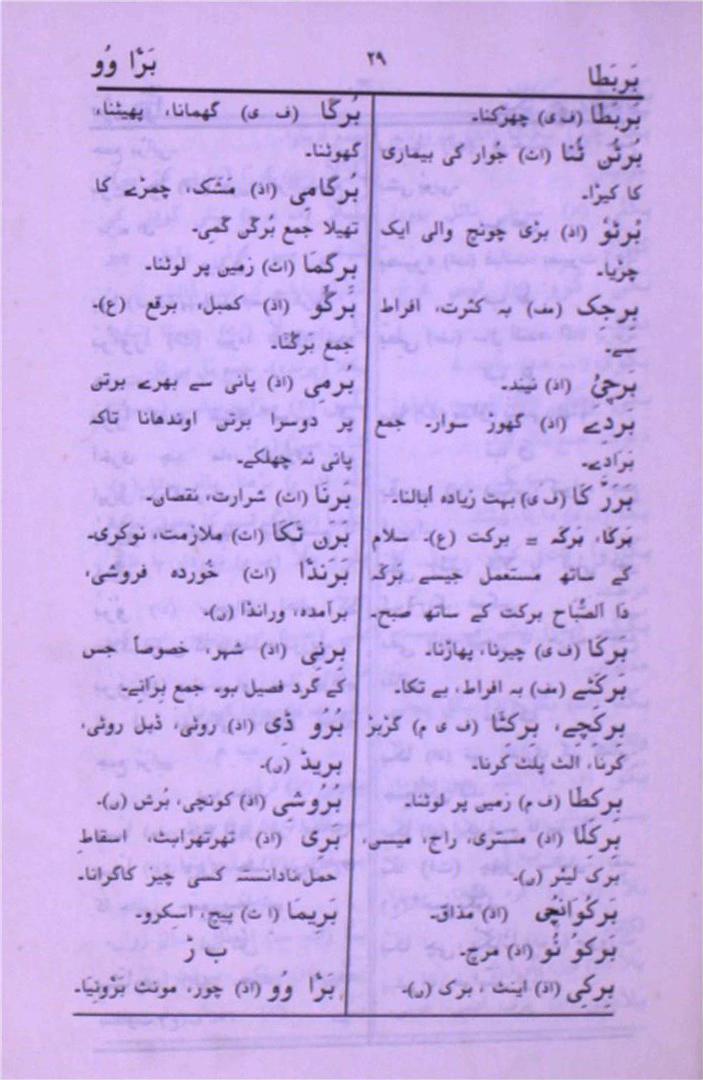 بَربَطا
۲۹
بَڑا وُو
بَربَطا (ف ی) چھڑکنا۔
بَرتَن تَنا (اث) جوار کی بیماری
کا کیڑا۔
بُرتو (اذ) بڑی چونچ والی ایک
چڑیا۔
بِرجک (مف) بہ کثرت، افراط
سے۔
بِرچیُ (اذ) نیند۔
بَردِے (اذ) گھوڑ سوار۔ جمع
بَرَادے۔
بَررَّ کا (ف ی) بہت زیادہ اُبالنا۔
بَرَکا، بَرَکَہ = برکت (ع)۔ سلام
کے ساتھ مستعمل جیسے بَرَکَہ
دَا اَلصُّبَاح برکت کے ساتھ صبح۔
بَرکا (ف ی) چیرنا، پھاڑنا۔
بَرکَتَے (مف) بہ افراط، بے تکا۔
بِرکَچِے، بِرکَتَا (ف ی م) گڑبڑ
کرنا، الٹ پلٹ کرنا۔
بِرکطا (ف م) زمین پر لوٹنا۔
بِرکَلَا (اذ) مستری، راج، میسن،
برک لیئر (ن)۔
بَرکَوانچِی (اذ) مذاق۔
بَرکَو نُو (اذ) مرچ۔
بِرکِی (اذ) اینٹ، برک (ن)۔
بُرگا (ف ی) گھمانا، پھیٹنا،
گھوٹنا۔
بُرگامِی (اذ) مَشک، چمڑے کا
تھیلا جمع بَرگن گمِی۔
بِرگمَا (اث) زمین پر لوٹنا۔
بُرگو (اذ) کمبل، برقع (ع)۔
جمع بَرگنا۔
بَرمِی (اذ) پانی سے بھرے برتن
پر دوسرا برتن اوندھانا تاکہ
پانی نہ چھلکے۔
بَرنَا (اث) شرارت، نقصان۔
بَرن تَکَا (اث) ملازمت، نوکری۔
بَرنڈا (اث) خوردہ فروشی،
برآمدہ، ورانڈا (ن)۔
بِرنِی (اذ) شہر، خصوصاً جس
کے گرد فصیل ہو۔ جمع بِرَانے۔
بُرُو ڈِی (اذ) روٹی، ڈبل روٹی،
بریڈ (ن)۔
بُرُوشِی (اذ) کونچی، بُرش (ن)۔
بَری (اذ) تھرتھراہٹ، اسقاطِ
حمل نادانستہ کسی چیز کا گرانا۔
بَرِیمَا (ا ث) پیچ، اسکرو۔
ب ڑ
بَڑا وُو (اذ) چور، مونث بَڑونیا۔